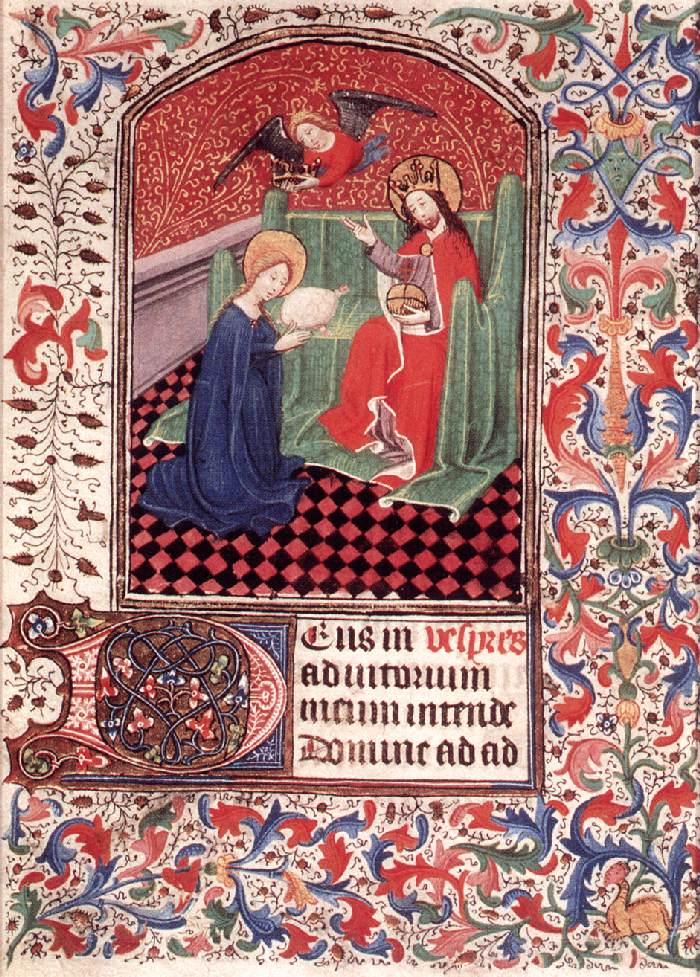 DEus in vespres
adiutorium
meum intende
Domine ad ad